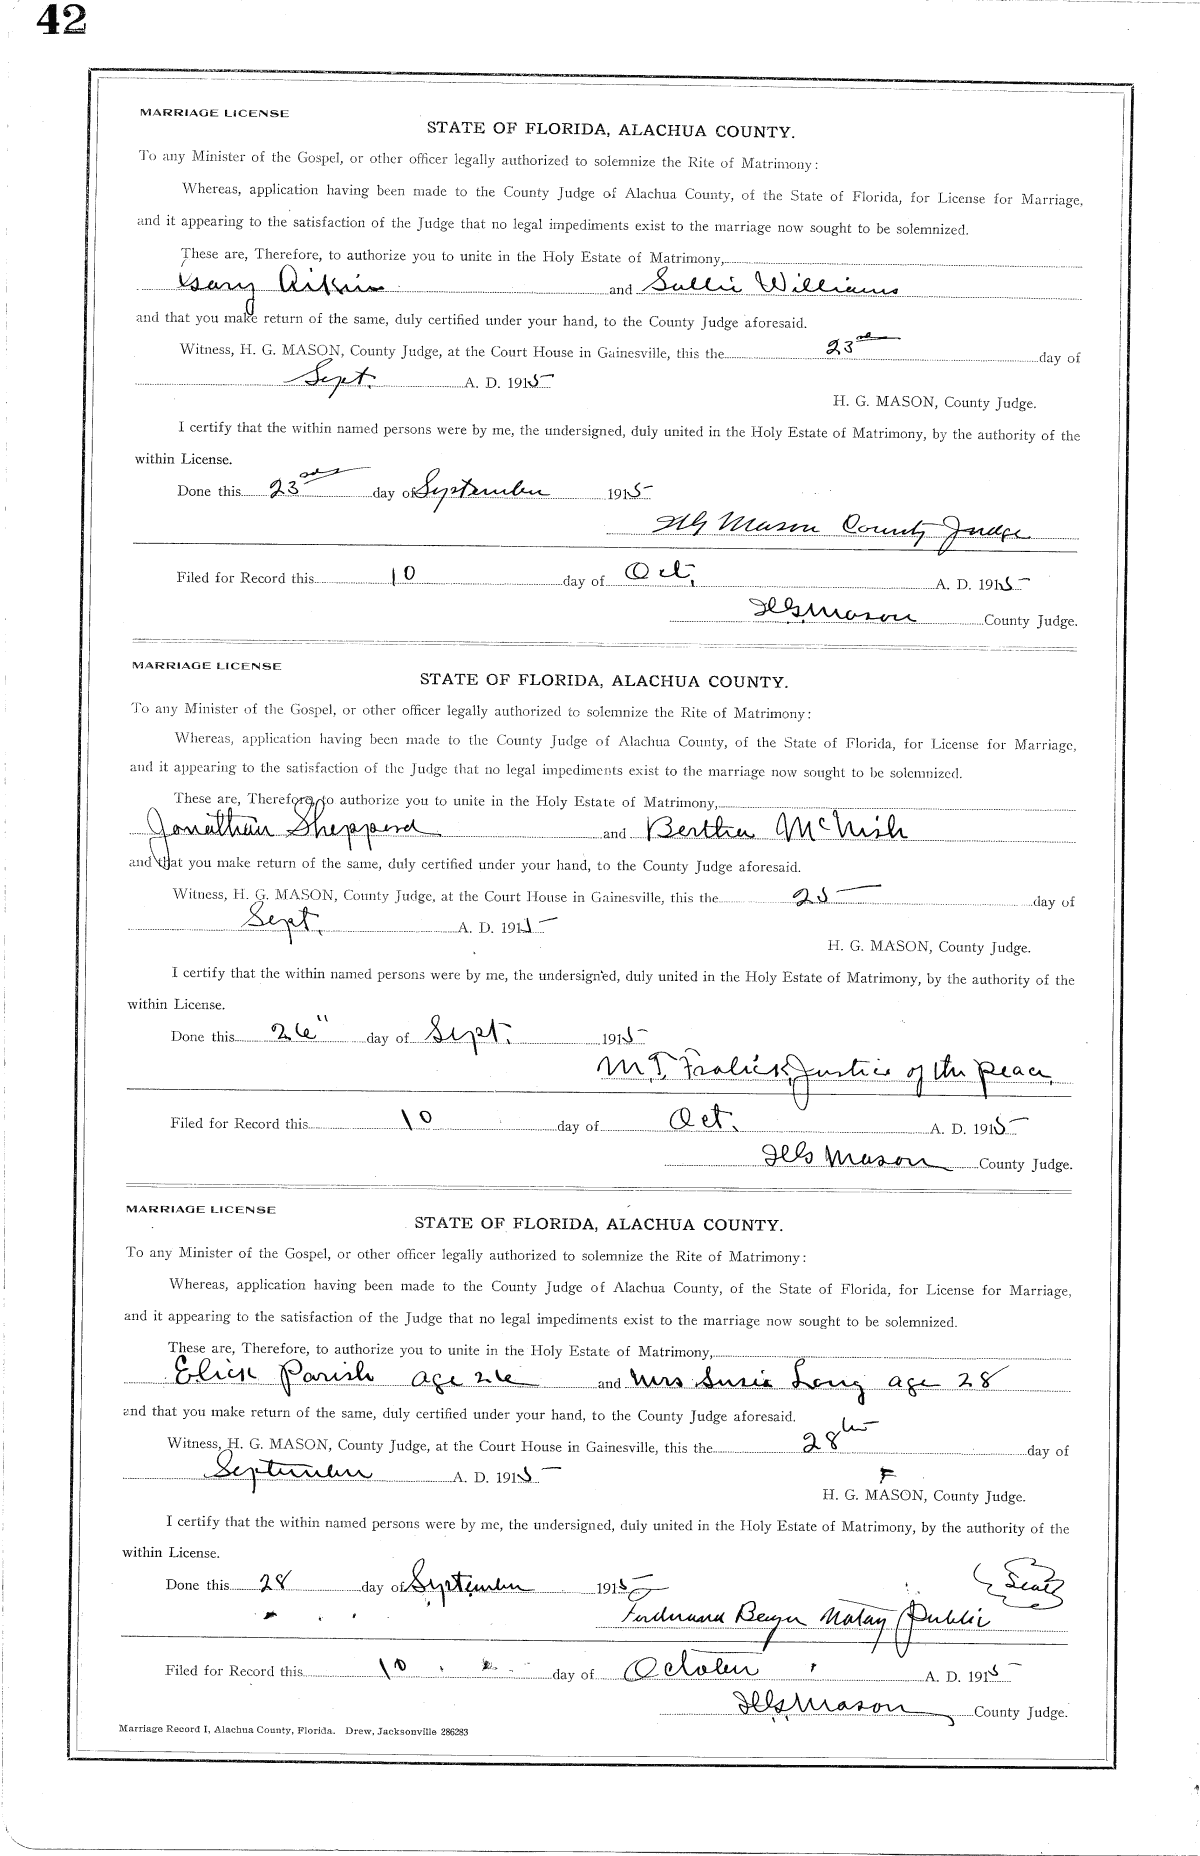 42
MARRIAGE LICENSE
STATE OF FLORIDA, ALACHUA COUNTY.
To any Minister of the Gospel, or other officer legally authorized to solemnize the Rite of Matrimony:
Whereas, application having been made to the County Judge of Alachua County, of the State of Florida, for License for Marriage,
and it appearing to the satisfaction of the Judge that no legal impediments exist to the marriage now sought to be solemnized.
These are, Therefore, to authorize you to unite in the Holy Estate of Matrimony,
Gary Aikin and Sallie Williams
and that you make return of the same, duly certified under your hand, to the County Judge aforesaid.
Witness, H. G. MASON, County Judge, at the Court House in Gainesville, this the 23rd day of
Sept. A. D. 1915
H. G. MASON, County Judge.
I certify that the within named persons were by me, the undersigned, duly united in the Holy Estate of Matrimony, by the authority of the
within License.
Done this 23rd day of September 1915
HG Mason County Judge
Filed for Record this 10 day of Oct. A. D. 1915
H.G. Mason County Judge.
MARRIAGE LICENSE
STATE OF FLORIDA, ALACHUA COUNTY.
To any Minister of the Gospel, or other officer legally authorized to solemnize the Rite of Matrimony:
Whereas, application having been made to the County Judge of Alachua County, of the State of Florida, for License for Marriage,
and it appearing to the satisfaction of the Judge that no legal impediments exist to the marriage now sought to be solemnized.
These are, Therefore, to authorize you to unite in the Holy Estate of Matrimony,
Jonathan Shepperd and Bertha McNish
and that you make return of the same, duly certified under your hand, to the County Judge aforesaid.
Witness, H. G. MASON, County Judge, at the Court House in Gainesville, this the 25 day of
Sept. A. D. 1915
H. G. MASON, County Judge.
I certify that the within named persons were by me, the undersigned, duly united in the Holy Estate of Matrimony, by the authority of the
within License.
Done this 26" day of Sept. 1915
M.T. Fralick, Justice of the peace,
Filed for Record this 10 day of Oct. A. D. 1915
HG Mason County Judge.
MARRIAGE LICENSE
STATE OF FLORIDA, ALACHUA COUNTY.
To any Minister of the Gospel, or other officer legally authorized to solemnize the Rite of Matrimony:
Whereas, application having been made to the County Judge of Alachua County, of the State of Florida, for License for Marriage,
and it appearing to the satisfaction of the Judge that no legal impediments exist to the marriage now sought to be solemnized.
These are, Therefore, to authorize you to unite in the Holy Estate of Matrimony,
Elick Parish age 26 and Mrs Susie Long age 28
and that you make return of the same, duly certified under your hand, to the County Judge aforesaid.
Witness, H. G. MASON, County Judge, at the Court House in Gainesville, this the 28th day of
September A. D. 1915
H. G. MASON, County Judge.
I certify that the within named persons were by me, the undersigned, duly united in the Holy Estate of Matrimony, by the authority of the
within License.
Done this 28 day of September 1915
Seal
Ferdinand Beyer Notay Public
Filed for Record this 10 day of October A. D. 1915
H.G. Mason County Judge.
Marriage Record I, Alachua County, Florida. Drew, Jacksonville 286283